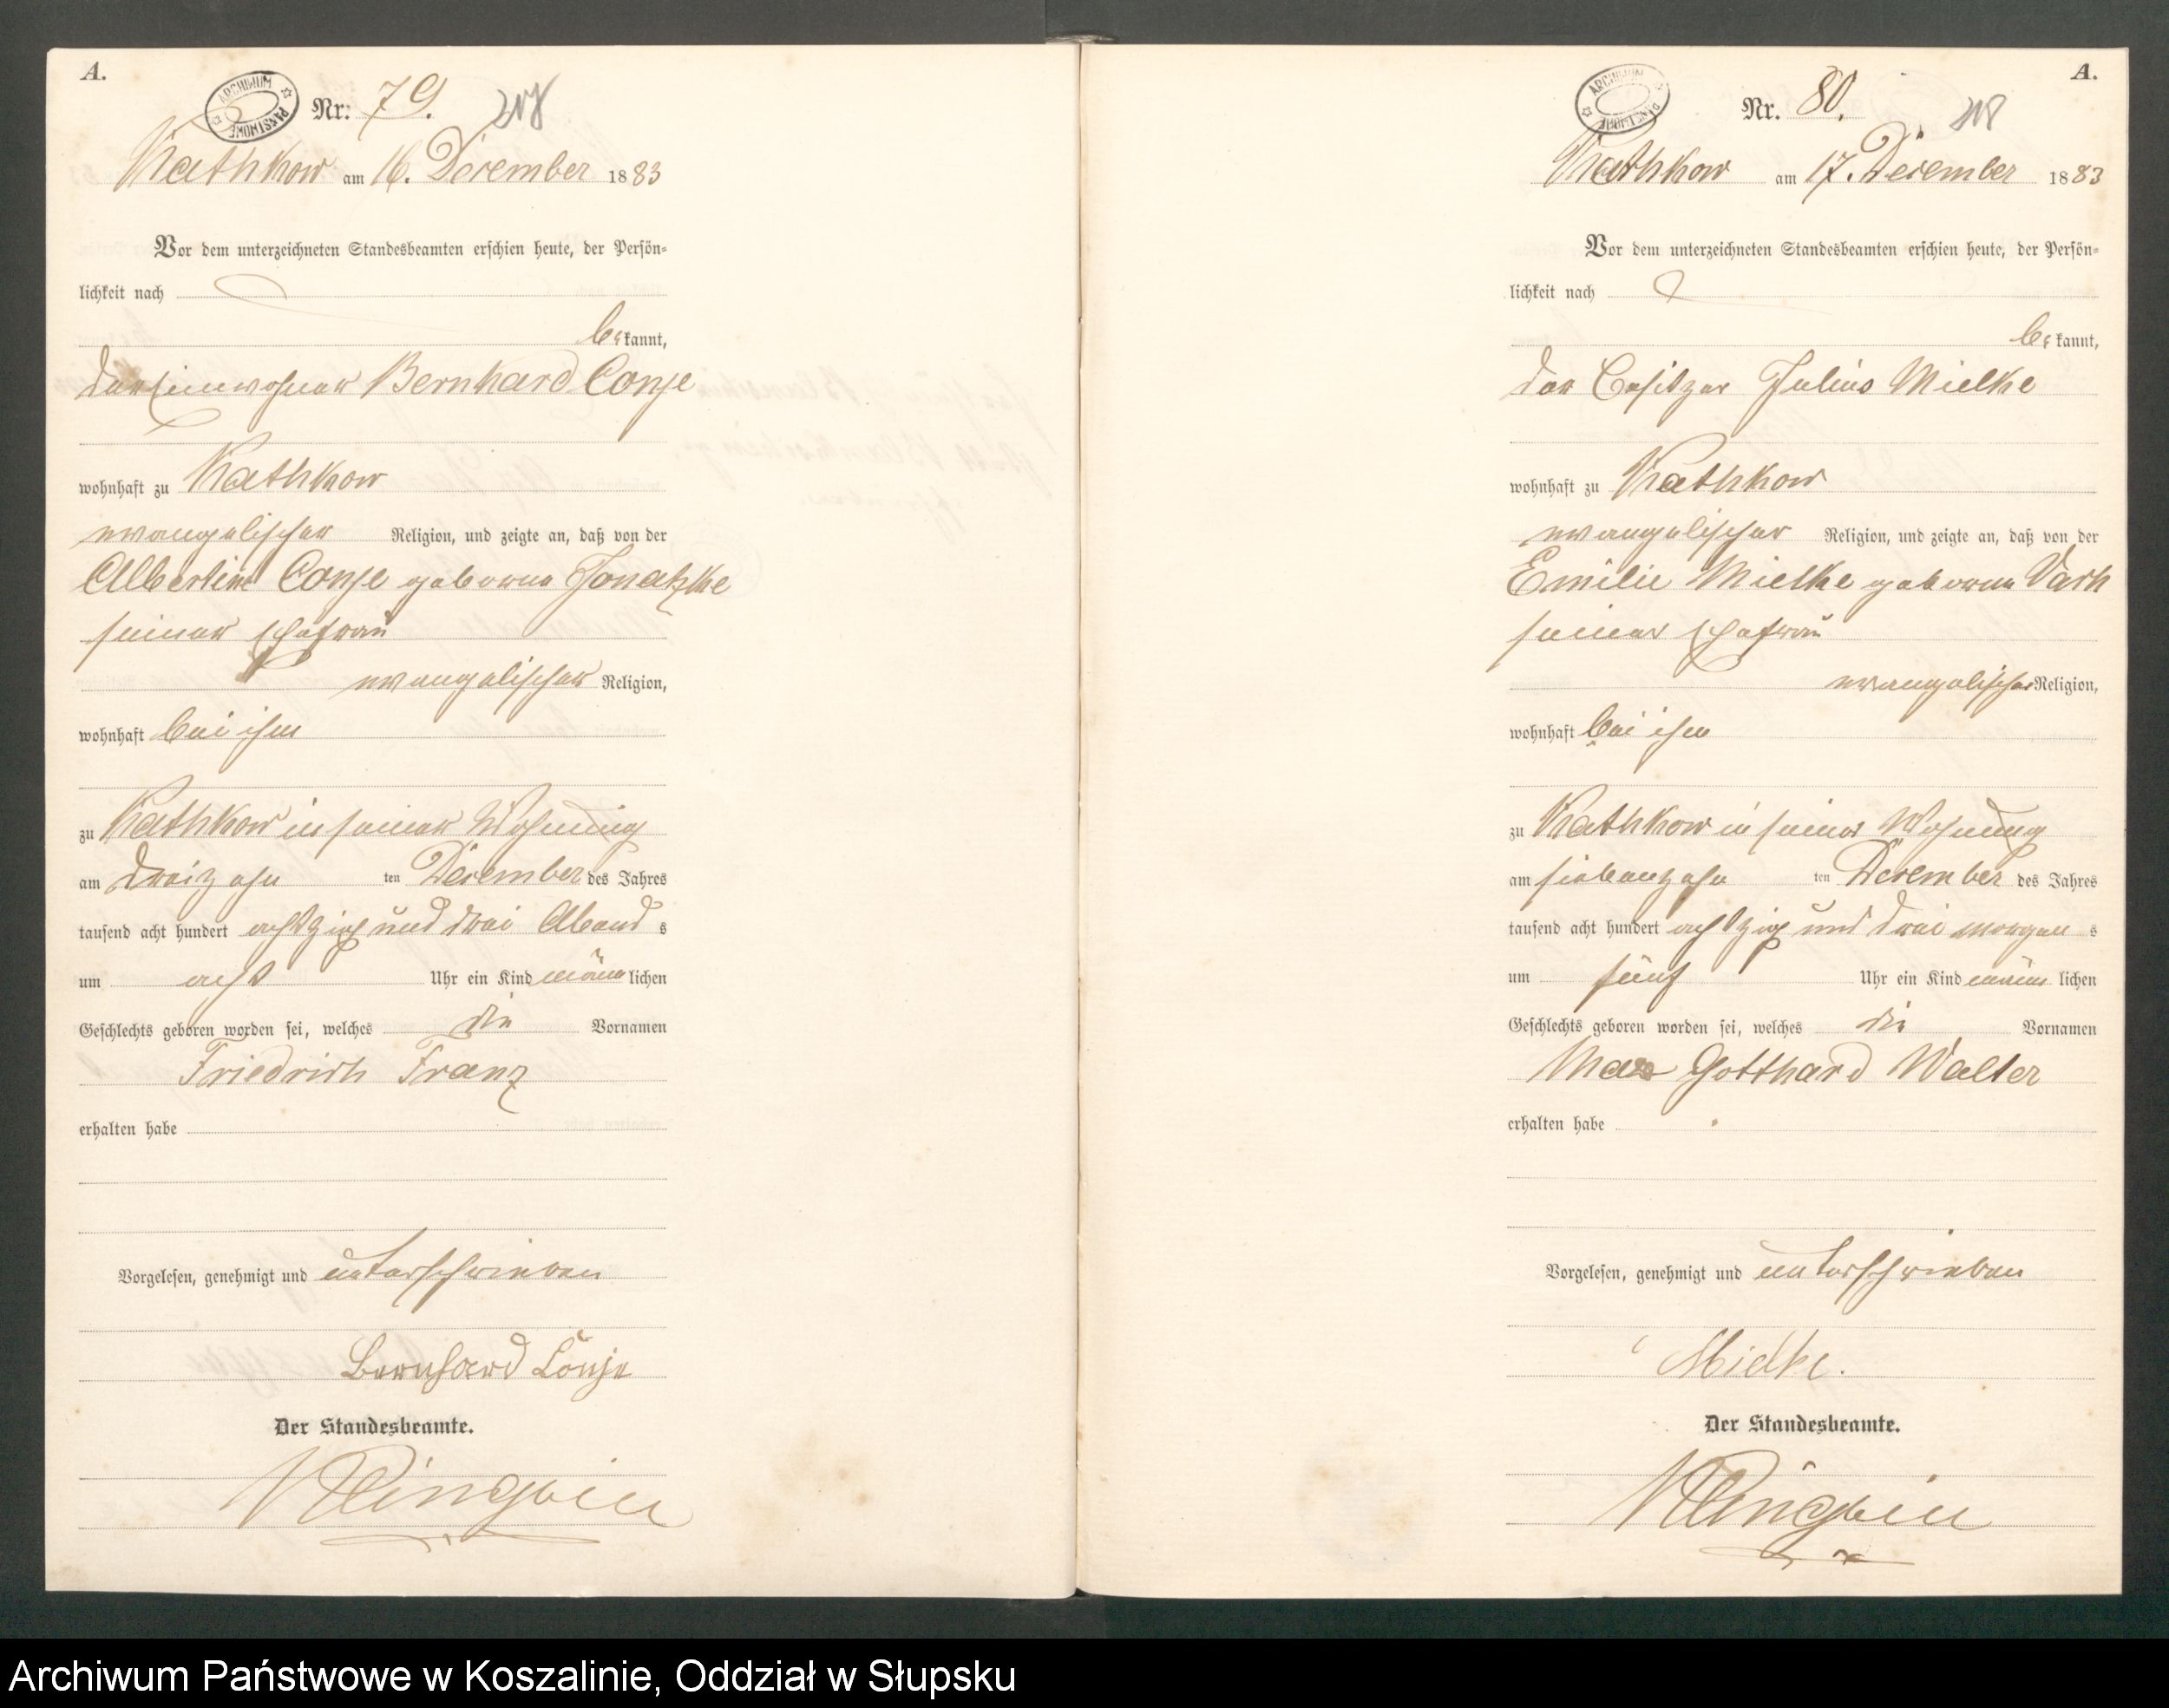 A.
ARCHIWUM PAŃSTWOWE
Nr: 79.
Rathkow am 16. December 1883
Vor dem unterzeichneten Standesbeamten erschien heute, der Persön=
lichkeit nach
be kannt,
der Einwohner Bernhard Conje
wohnhaft zu Rathkow
evangelischer Religion, und zeigte an, daß von der
Albertine Conje geborene Jonatzke
seiner Ehefrau
evangelischer Religion,
wohnhaft bei ihm
zu Rathkow in seiner Wohnung
am dreizehn ten December des Jahres
tausend acht hundert achtzig und drei Abend s
um acht Uhr ein Kind männ lichen
Geschlechts geboren worden sei, welches die Vornamen
Friedrich Franz
erhalten habe
Vorgelesen, genehmigt und unterschrieben
Bernhard Conje
Der Standesbeamte.
A.
ARCHIWUM PAŃSTWOWE
Nr. 80.
218
Rathkow am 17. December 1883
Vor dem unterzeichneten Standesbeamten erschien heute, der Persön=
lichkeit nach
be kannt,
der Besitzer Julius Mielke
wohnhaft zu Rathkow
evangelischer Religion, und zeigte an, daß von der
Emilie Mielke geborene
seiner Ehefrau
evangelischer Religion,
wohnhaft bei ihm
zu Rathkow in seiner Wohnung
am siebenzehn ten December des Jahres
tausend acht hundert achtzig und drei morgen s
um fünf Uhr ein Kind männ lichen
Geschlechts geboren worden sei, welches die Vornamen
Max Gotthard Walter
erhalten habe
Vorgelesen, genehmigt und unterschrieben
Mielke.
Der Standesbeamte.
Archiwum Państwowe w Koszalinie, Oddział w Słupsku